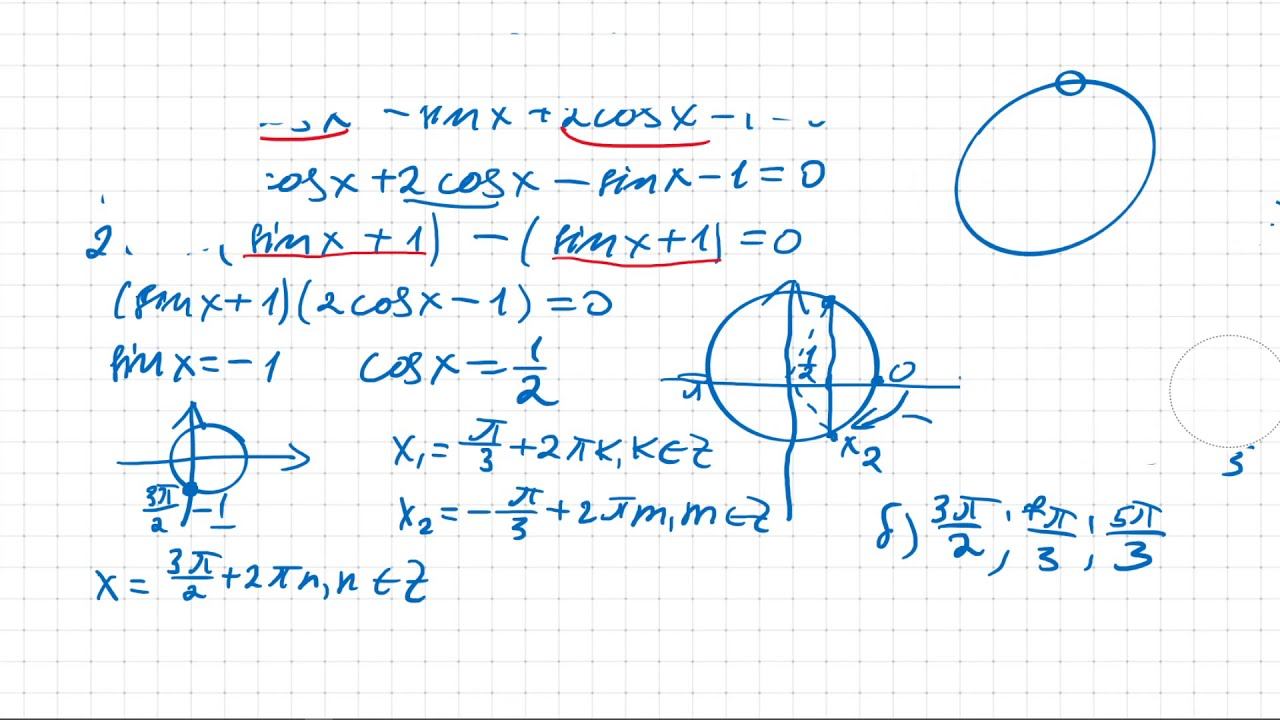 - sin x + 2cos x - 1
cos x + 2 cos x - sin x - 1 = 0
2. sin x + 1) - (sin x + 1) = 0
(sin x + 1)(2cos x - 1) = 0
sin x = -1 cos x = 1/2
π 1/2 0
x₂
3π/2 -1
x₁ = π/3 + 2πk, k ∈ Z
x₂ = -π/3 + 2πm, m ∈ Z
x = 3π/2 + 2πn, n ∈ Z
б) 3π/2 ; π/3 ; 5π/3
3